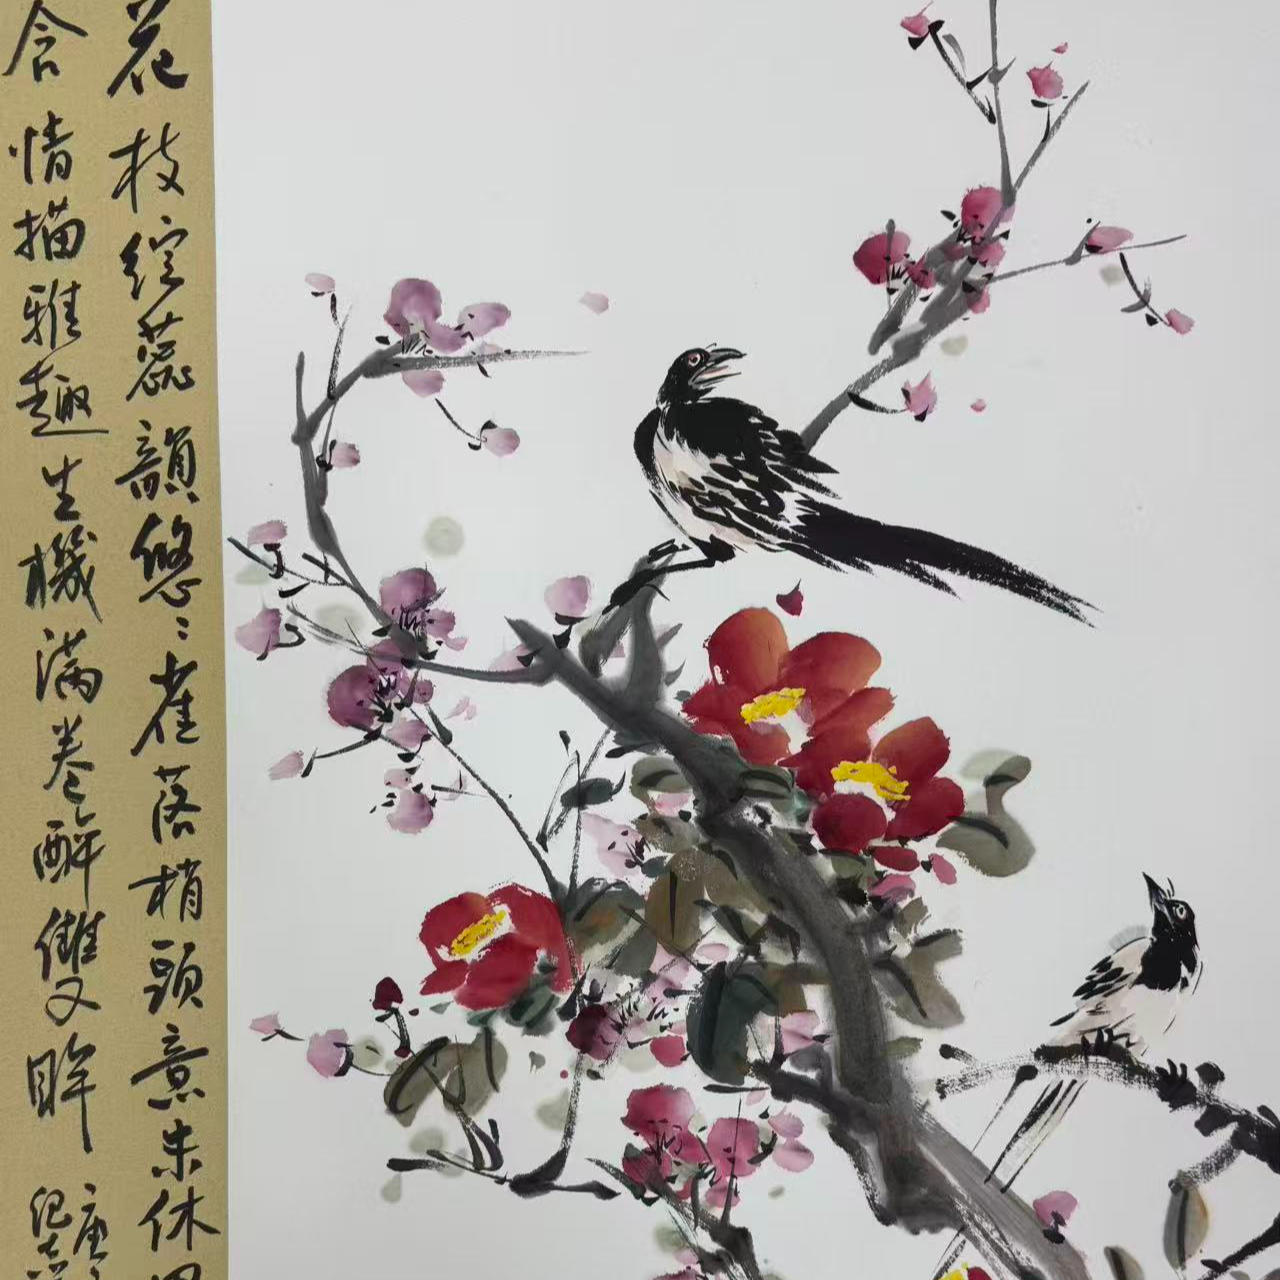 花枝綻蕊韻悠悠雀落梢頭意未休
含情描雅趣生機滿卷醉雙眸